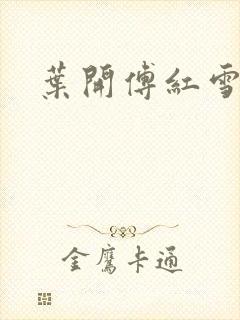 葉開傅紅雪
金鷹卡通